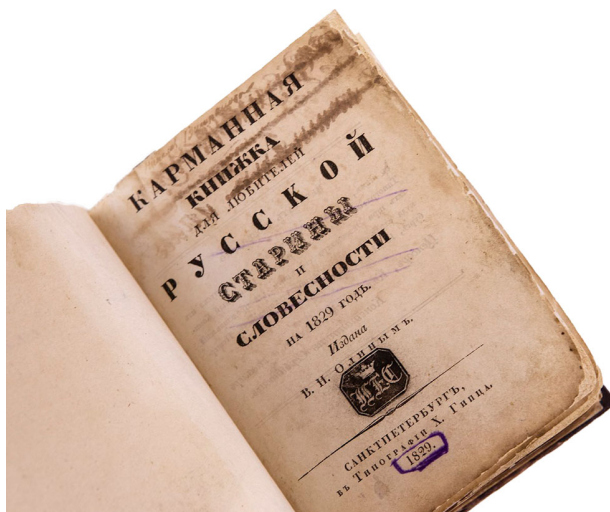 КАРМАННАЯ
КНИЖКА
ДЛЯ ЛЮБИТЕЛЕЙ
РУССКОЙ
СТАРИНЫ
И
СЛОВЕСНОСТИ
НА 1829 ГОДЪ.
Издана
В. Н. ОЛИНЫМЪ.
САНКТПЕТЕРБУРГЪ,
въ Типографіи Х. Гинца.
1829.